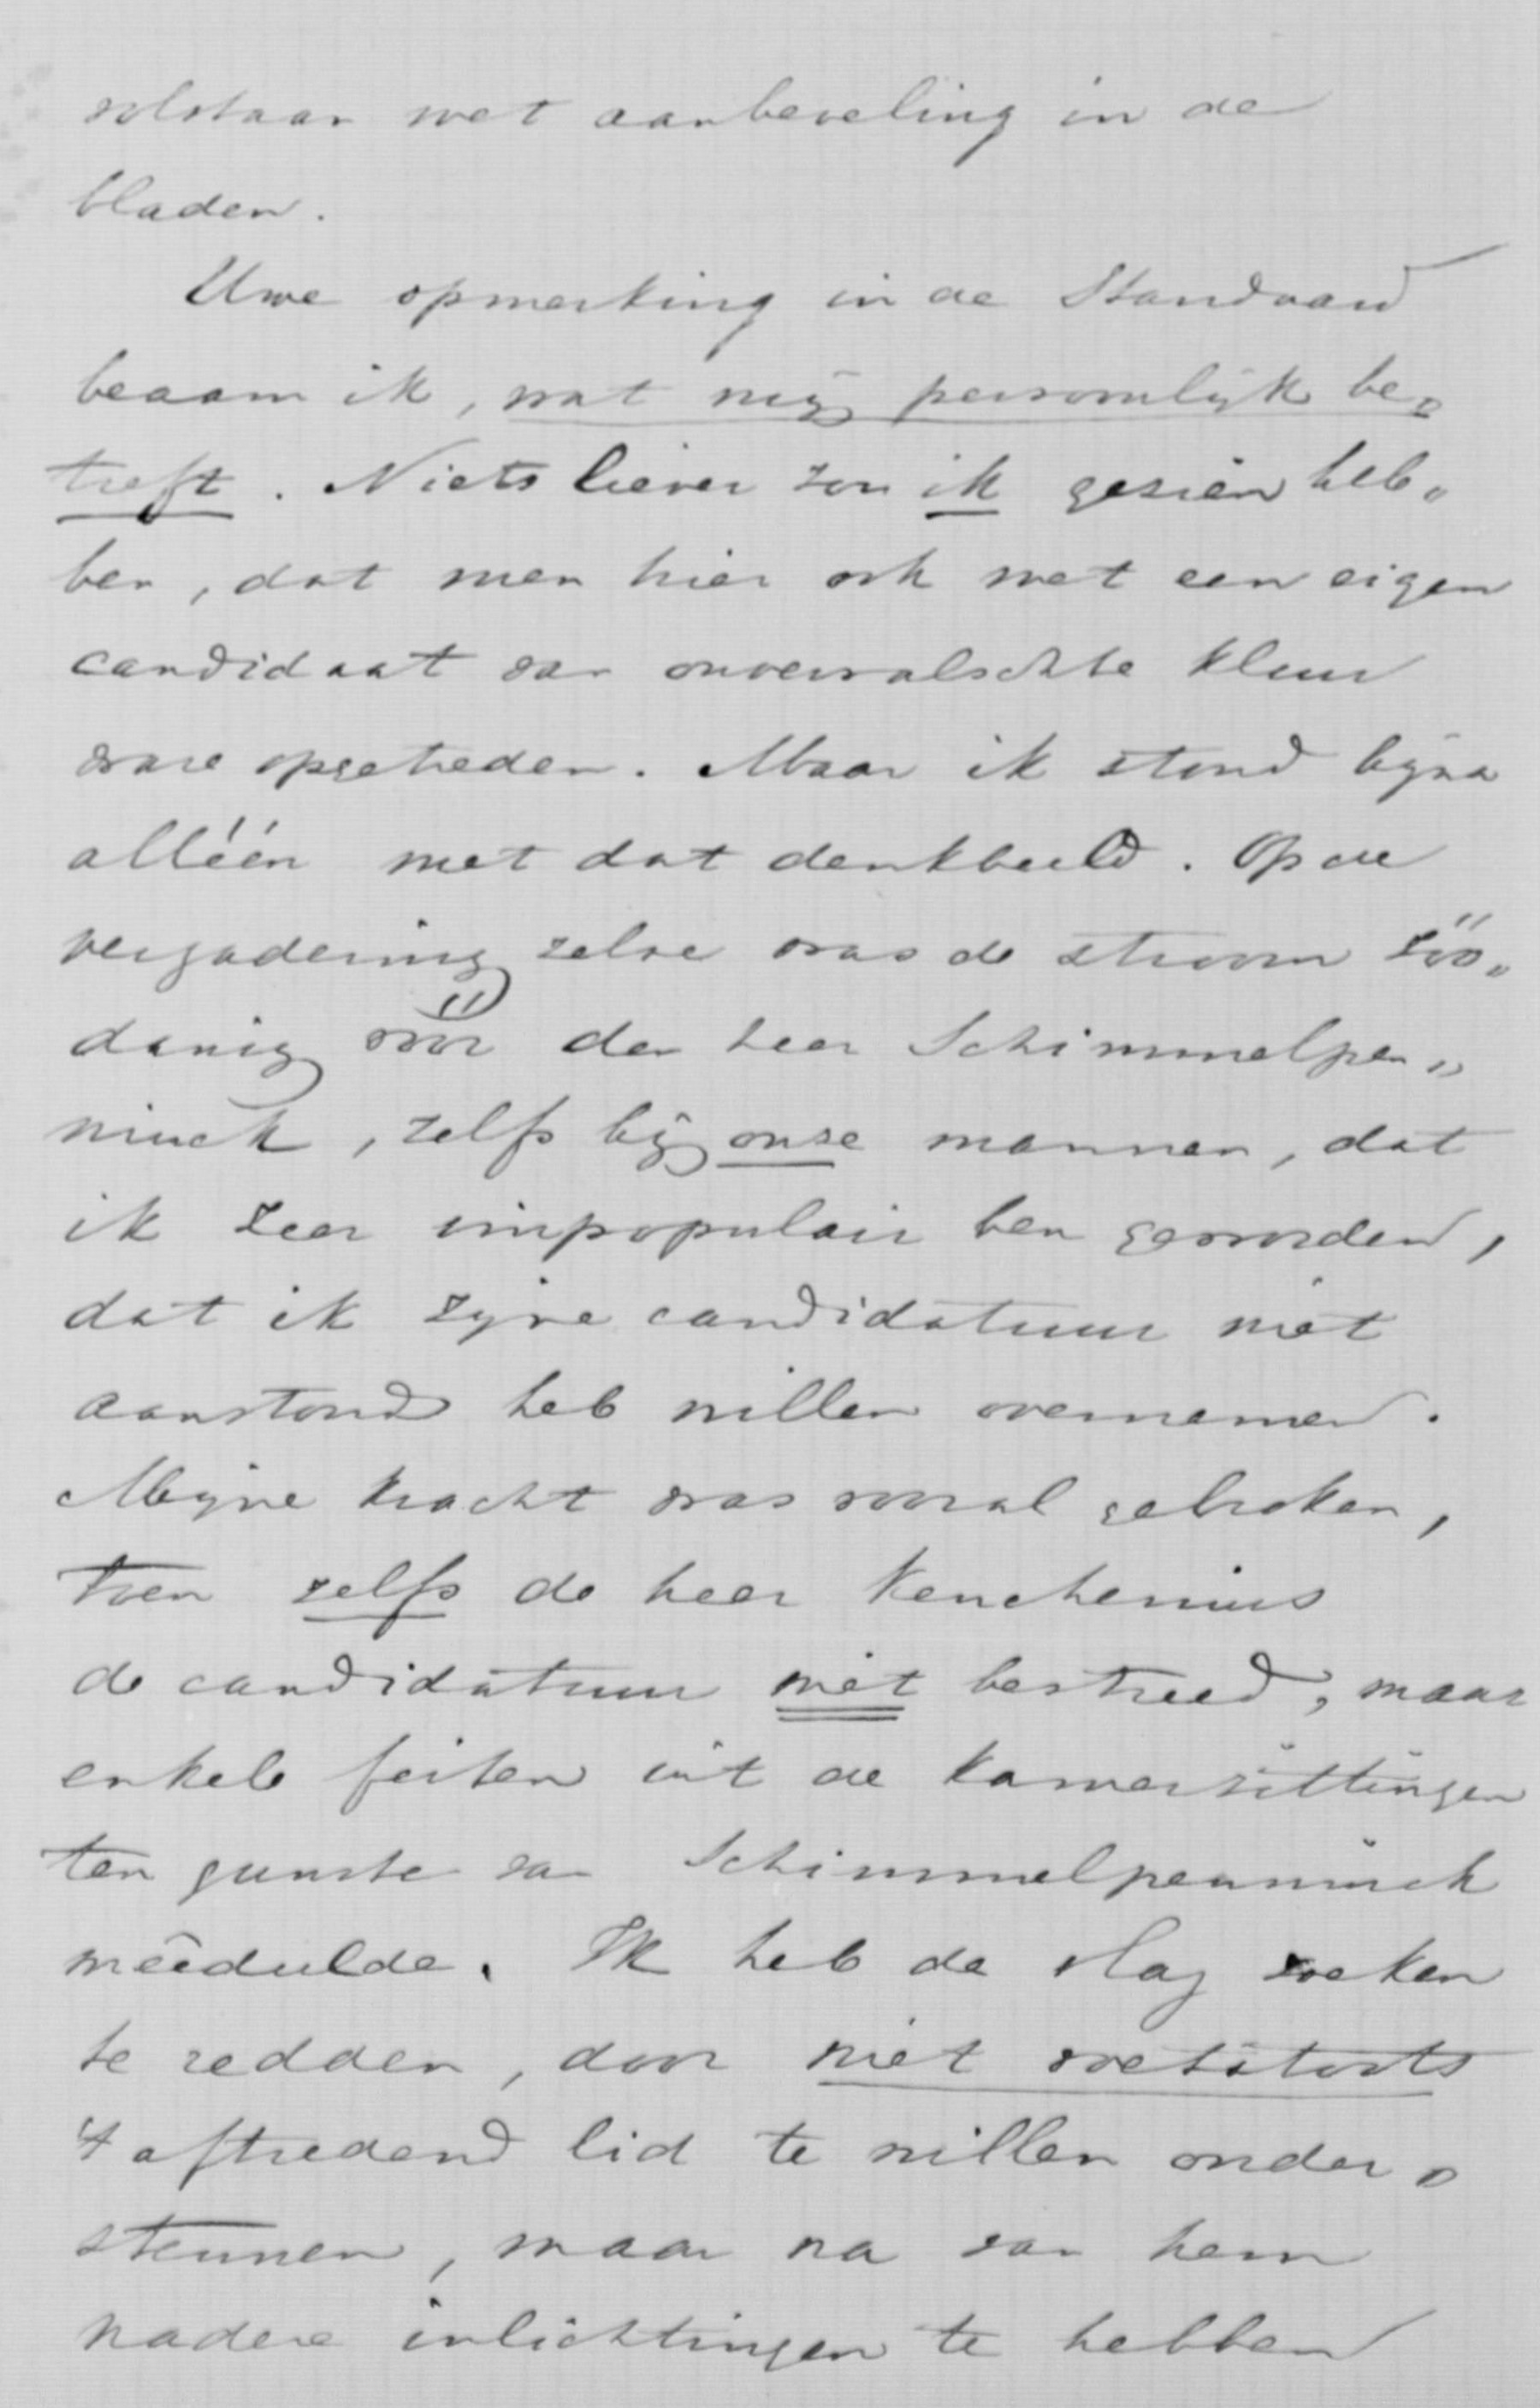 volstaan met aanbeveling in de
bladen.
Uwe opmerking in de Standaard
beaam ik, wat mij persoonlijk be„
treft. Niets liever zou ik gezien heb„
ben, dat men hier ook met een eigen
candidaat van onvervalschte kleur
ware opgetreden. Maar ik stond bijna
alléén met dat denkbeeld. Op de
vergadering zelve was de stroom zóó„
danig vóór den heer Schimmelpen„
ninck, zelfs bij onze mannen, dat
ik zeer impopulair ben geworden,
dat ik zijne candidatuur niet
aanstonds heb willen overnemen.
Mijne kracht was vooral gebroken,
toen zelfs de heer Keuchenius
de candidatuur niet bestreed, maar
enkele feiten uit de Kamerzittingen
ten gunste van Schimmelpenninck
meêdeelde. Ik heb de vlag zoeken
te redden, door niet voetstoots
't aftredend lid te willen onder„
steunen, maar na van hem
nadere inlichtingen te hebben